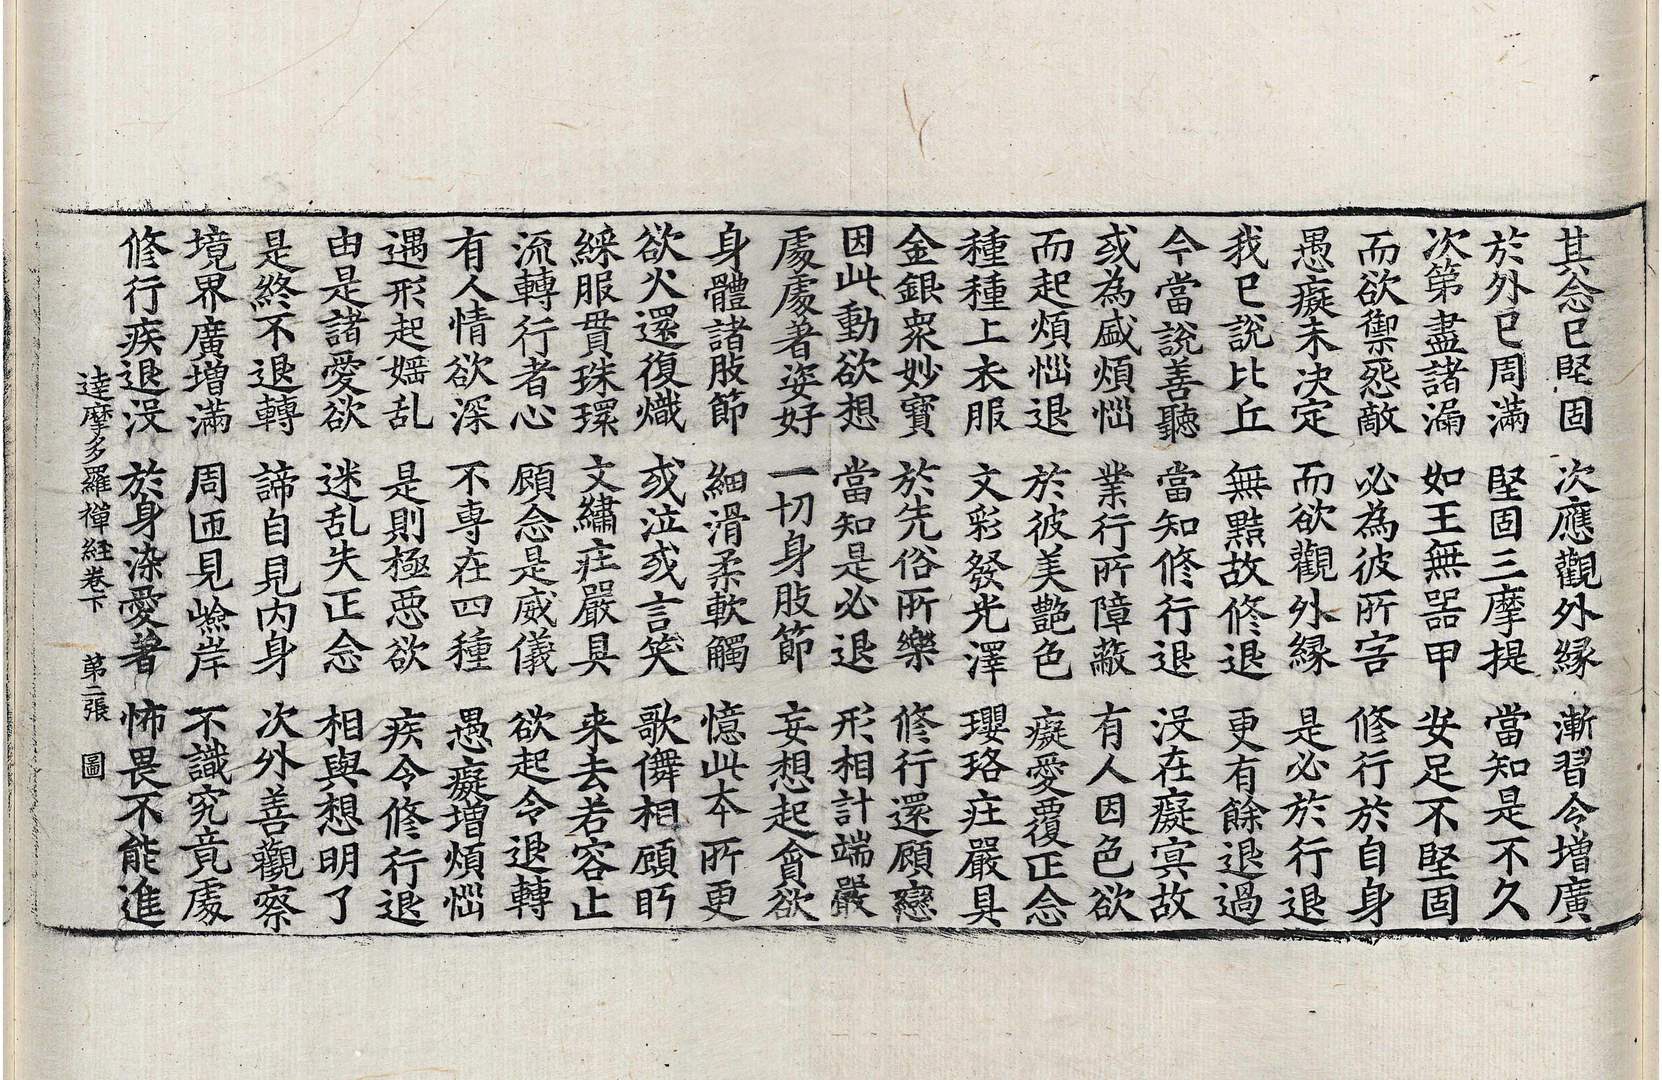 其念已堅固 次應觀外縁 漸習令增廣
於外已周滿 堅固三摩提 當知是不久
次第盡諸漏 如王無器甲 安足不堅固
而欲禦㤪敵 必為彼所害 修行於自身
愚癡未决定 而欲觀外縁 是必於行退
我已說比丘 無黠故修退 更有餘退過
今當說善聽 當知修行退 没在癡㝠故
或為盛煩惱 業行所障蔽 有人因色欲
而起煩惱退 於彼美艶色 癡愛覆正念
種種上衣服 文彩發光澤 瓔珞莊嚴具
金銀衆妙寳 於先俗所樂 修行還顧戀
因此動欲想 當知是必退 形相計端嚴
處處著姿好 一切身肢節 妄想起貪欲
身體諸肢節 細滑柔軟觸 憶此本所更
欲火還復熾 或泣或言笑 歌儛相顧眄
綵服貫珠環 文繡莊嚴具 来去若容止
流轉行者心 顧念是威儀 欲起令退轉
有人情欲深 不専在四種 愚癡增煩惱
遇形起婬乱 是則極惡欲 疾令修行退
由是諸愛欲 迷乱失正念 相與想明了
是終不退轉 諦自見内身 次外善觀察
境界廣增滿 周匝見嶮岸 不識究竟處
修行疾退没 於身染愛著 怖畏不能進
達摩多羅禪経卷下 第二張 圖